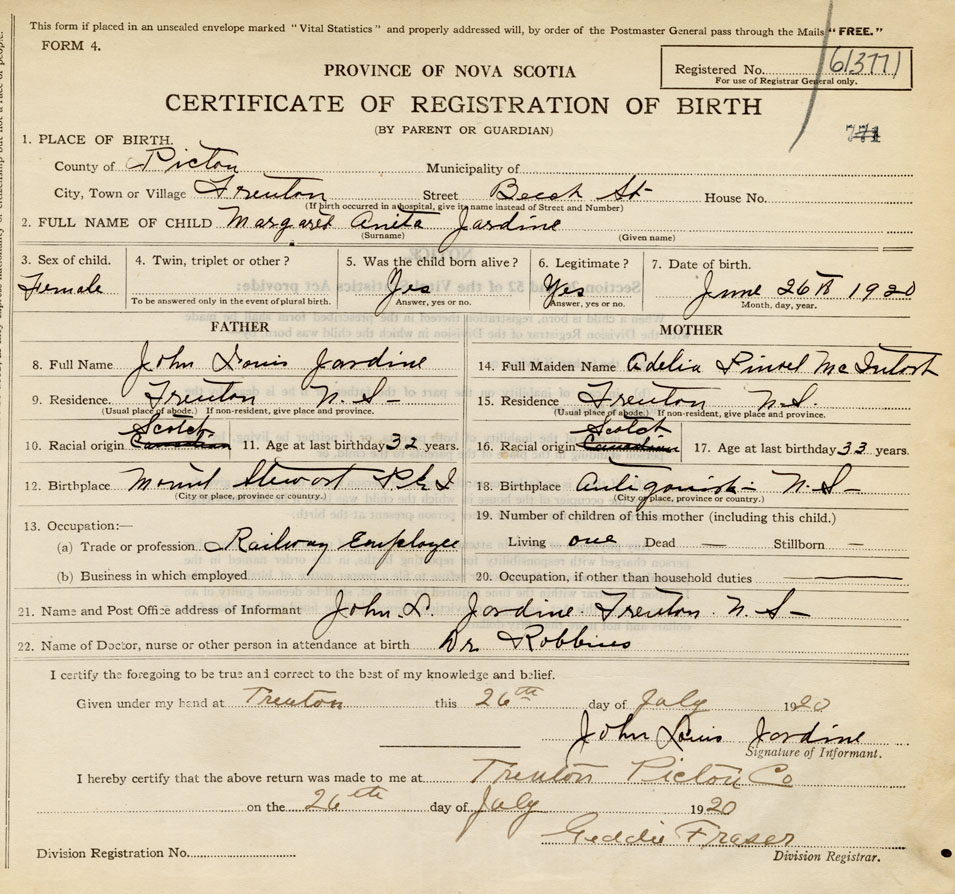 This form if placed in an unsealed envelope marked "Vital Statistics" and properly addressed will, by order of the Postmaster General pass through the Mails "FREE."
FORM 4.
Registered No. 61377
For use of Registrar General only.
PROVINCE OF NOVA SCOTIA
CERTIFICATE OF REGISTRATION OF BIRTH
(BY PARENT OR GUARDIAN)
771
1. PLACE OF BIRTH.
County of Picton Municipality of
City, Town or Village Trenton Street Beech St- House No.
(If birth occurred in a hospital, give its name instead of Street and Number)
2. FULL NAME OF CHILD Margaret Anita Jardine
(Surname) (Given name)
3. Sex of child. 4. Twin, triplet or other? 5. Was the child born alive? 6. Legitimate? 7. Date of birth.
Female Yes Yes June 26th 1920
To be answered only in the event of plural birth. Answer, yes or no. Answer, yes or no. Month, day, year.
FATHER MOTHER
8. Full Name John Louis Jardine 14. Full Maiden Name Adelia McIntosh
9. Residence. Trenton N.S- 15. Residence Trenton N.S.
(Usual place of abode.) If non-resident, give place and province. (Usual place of abode.) If non-resident, give place and province.
Scotch Scotch
10. Racial origin Canadian 11. Age at last birthday 32 years. 16. Racial origin Canadian 17. Age at last birthday 33 years.
12. Birthplace Mount Stewart P.E.I 18. Birthplace Antigonish- N.S-
(City or place, province or country.) (City or place, province or country.)
13. Occupation:— 19. Number of children of this mother (including this child.)
(a) Trade or profession Railway Employee Living one Dead — Stillborn —
(b) Business in which employed 20. Occupation, if other than household duties —
21. Name and Post Office address of Informant John L. Jardine. Trenton. N.S-
22. Name of Doctor, nurse or other person in attendance at birth Dr Robbins
I certify the foregoing to be true and correct to the best of my knowledge and belief.
Given under my hand at Trenton this 26th day of July 1920
John Louis Jardine
Signature of Informant.
I hereby certify that the above return was made to me at Trenton Picton Co
on the 26th day of July 1920
Geddie Fraser
Division Registrar.
Division Registration No.